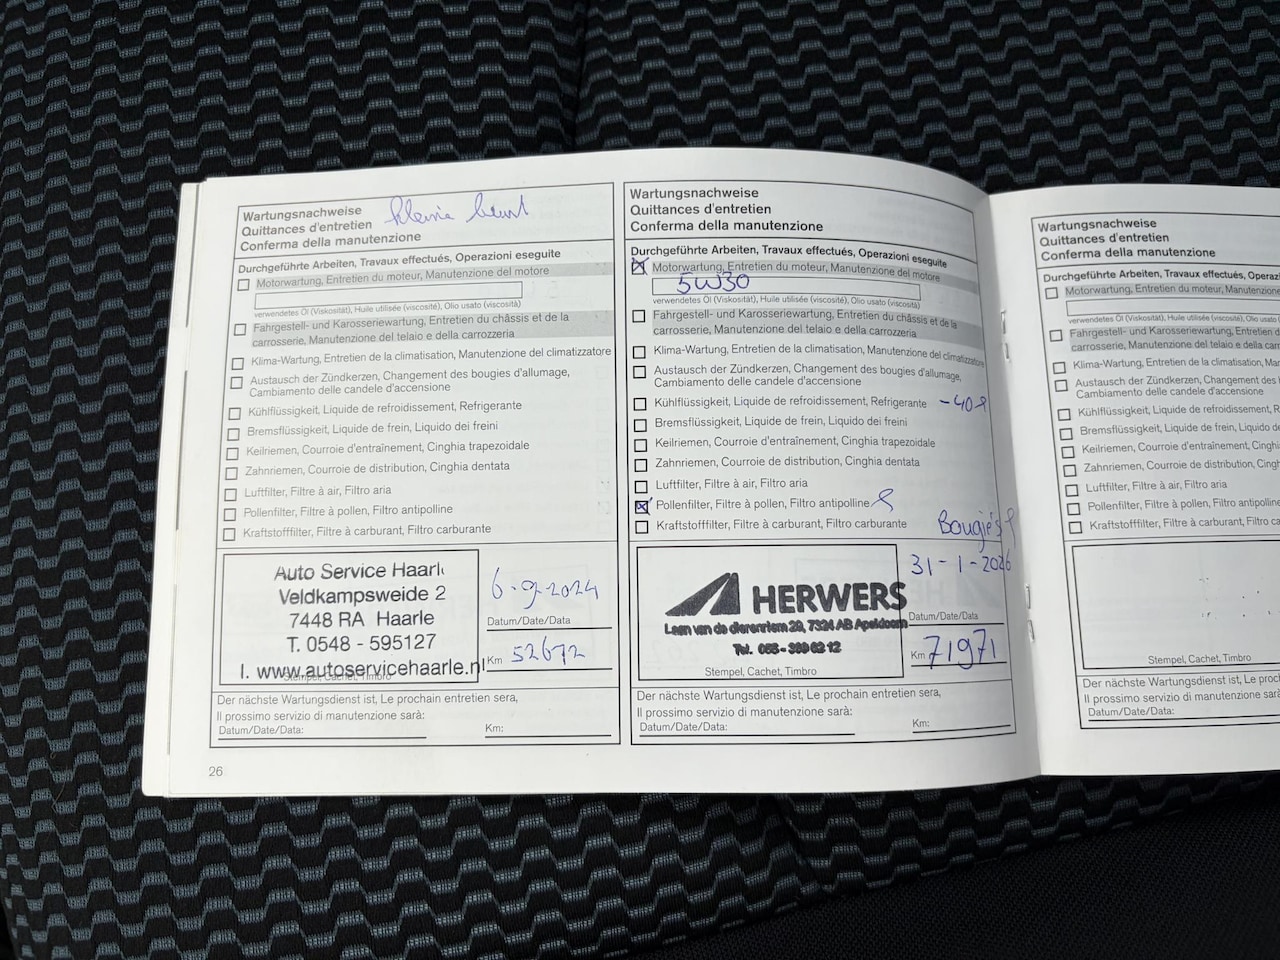 Wartungsnachweise
Quittances d'entretien
Conferma della manutenzione
kleine beurt
Durchgeführte Arbeiten, Travaux effectués, Operazioni eseguite
Motorwartung, Entretien du moteur, Manutenzione del motore
verwendetes Öl (Viskosität), Huile utilisée (viscosité), Olio usato (viscosità)
Fahrgestell- und Karosseriewartung, Entretien du châssis et de la
carrosserie, Manutenzione del telaio e della carrozzeria
Klima-Wartung, Entretien de la climatisation, Manutenzione del climatizzatore
Austausch der Zündkerzen, Changement des bougies d'allumage,
Cambiamento delle candele d'accensione
Kühlflüssigkeit, Liquide de refroidissement, Refrigerante
Bremsflüssigkeit, Liquide de frein, Liquido dei freini
Keilriemen, Courroie d'entraînement, Cinghia trapezoidale
Zahnriemen, Courroie de distribution, Cinghia dentata
Luftfilter, Filtre à air, Filtro aria
Pollenfilter, Filtre à pollen, Filtro antipolline
Kraftstofffilter, Filtre à carburant, Filtro carburante
Auto Service Haarl
Veldkampsweide 2
7448 RA Haarle
T. 0548 - 595127
I. www.autoservicehaarle.nl
Stempel, Cachet, Timbro
6-9-2024
Datum/Date/Data
Km 52672
Der nächste Wartungsdienst ist, Le prochain entretien sera,
Il prossimo servizio di manutenzione sarà:
Datum/Date/Data:
Km:
26
Wartungsnachweise
Quittances d'entretien
Conferma della manutenzione
Durchgeführte Arbeiten, Travaux effectués, Operazioni eseguite
Motorwartung, Entretien du moteur, Manutenzione del motore
5W30
verwendetes Öl (Viskosität), Huile utilisée (viscosité), Olio usato (viscosità)
Fahrgestell- und Karosseriewartung, Entretien du châssis et de la
carrosserie, Manutenzione del telaio e della carrozzeria
Klima-Wartung, Entretien de la climatisation, Manutenzione del climatizzatore
Austausch der Zündkerzen, Changement des bougies d'allumage,
Cambiamento delle candele d'accensione
Kühlflüssigkeit, Liquide de refroidissement, Refrigerante -40
Bremsflüssigkeit, Liquide de frein, Liquido dei freini
Keilriemen, Courroie d'entraînement, Cinghia trapezoidale
Zahnriemen, Courroie de distribution, Cinghia dentata
Luftfilter, Filtre à air, Filtro aria
Pollenfilter, Filtre à pollen, Filtro antipolline
Kraftstofffilter, Filtre à carburant, Filtro carburante
Bougies
HERWERS
Laan van de dierenriem 29, 7324 AB Apeldoorn
Stempel, Cachet, Timbro
31-1-2026
Datum/Date/Data
Km 71971
Der nächste Wartungsdienst ist, Le prochain entretien sera,
Il prossimo servizio di manutenzione sarà:
Datum/Date/Data:
Km:
Wartungsnachweise
Quittances d'entretien
Conferma della manutenzione
Durchgeführte Arbeiten, Travaux effectués, Operazi
Motorwartung, Entretien du moteur, Manutenzione
verwendetes Öl (Viskosität), Huile utilisée (viscosité), Olio usato
Fahrgestell- und Karosseriewartung, Entretien du
carrosserie, Manutenzione del telaio e della carr
Klima-Wartung, Entretien de la climatisation, Man
Austausch der Zündkerzen, Changement des b
Cambiamento delle candele d'accensione
Kühlflüssigkeit, Liquide de refroidissement, R
Bremsflüssigkeit, Liquide de frein, Liquido de
Keilriemen, Courroie d'entraînement, Cinghi
Zahnriemen, Courroie de distribution, Cingh
Luftfilter, Filtre à air, Filtro aria
Pollenfilter, Filtre à pollen, Filtro antipolline
Kraftstofffilter, Filtre à carburant, Filtro c
Stempel, Cachet, Timbro
Der nächste Wartungsdienst ist, Le proch
Il prossimo servizio di manutenzione sarà
Datum/Date/Data: